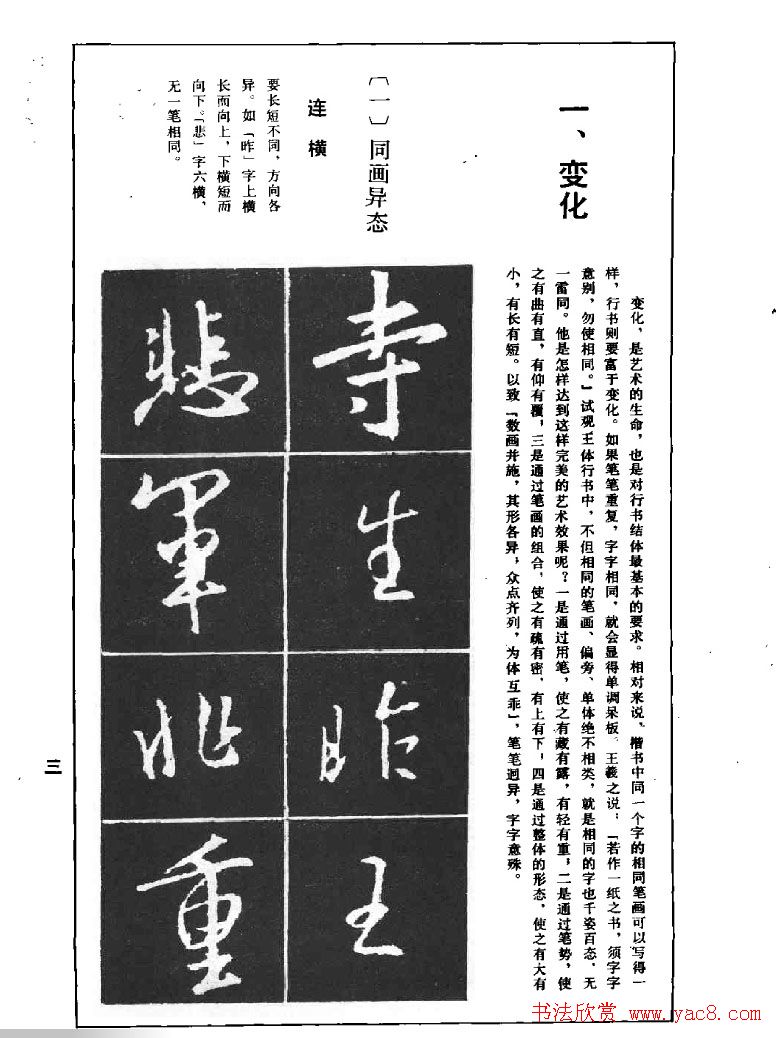 一、变化
变化，是艺术的生命，也是对行书结体最基本的要求。相对来说，楷书中同一个字的相同笔画可以写得一
样，行书则要富于变化。如果笔笔重复，字字相同，就会显得单调呆板。王羲之说：「若作一纸之书，须字字
意别，勿使相同。」试观王体行书中，不但相同的笔画、偏旁、单体绝不相类，就是相同的字也千姿百态，无
一雷同。他是怎样达到这样完美的艺术效果呢？一是通过用笔，使之有藏有露，有轻有重；二是通过笔势，使
之有曲有直，有仰有覆；三是通过笔画的组合，使之有疏有密，有上有下；四是通过整体的形态，使之有大有
小，有长有短。以致「数画并施，其形各异，众点齐列，为体互乖」，笔笔迥异，字字意殊。
〔一〕同画异态
连横
要长短不同，方向各
异。如「昨」字上横
长而向上，下横短而
向下。「悲」字六横，
无一笔相同。
寺
生
昨
王
悲
军
非
重
三
书法欣赏 www.yac8.com